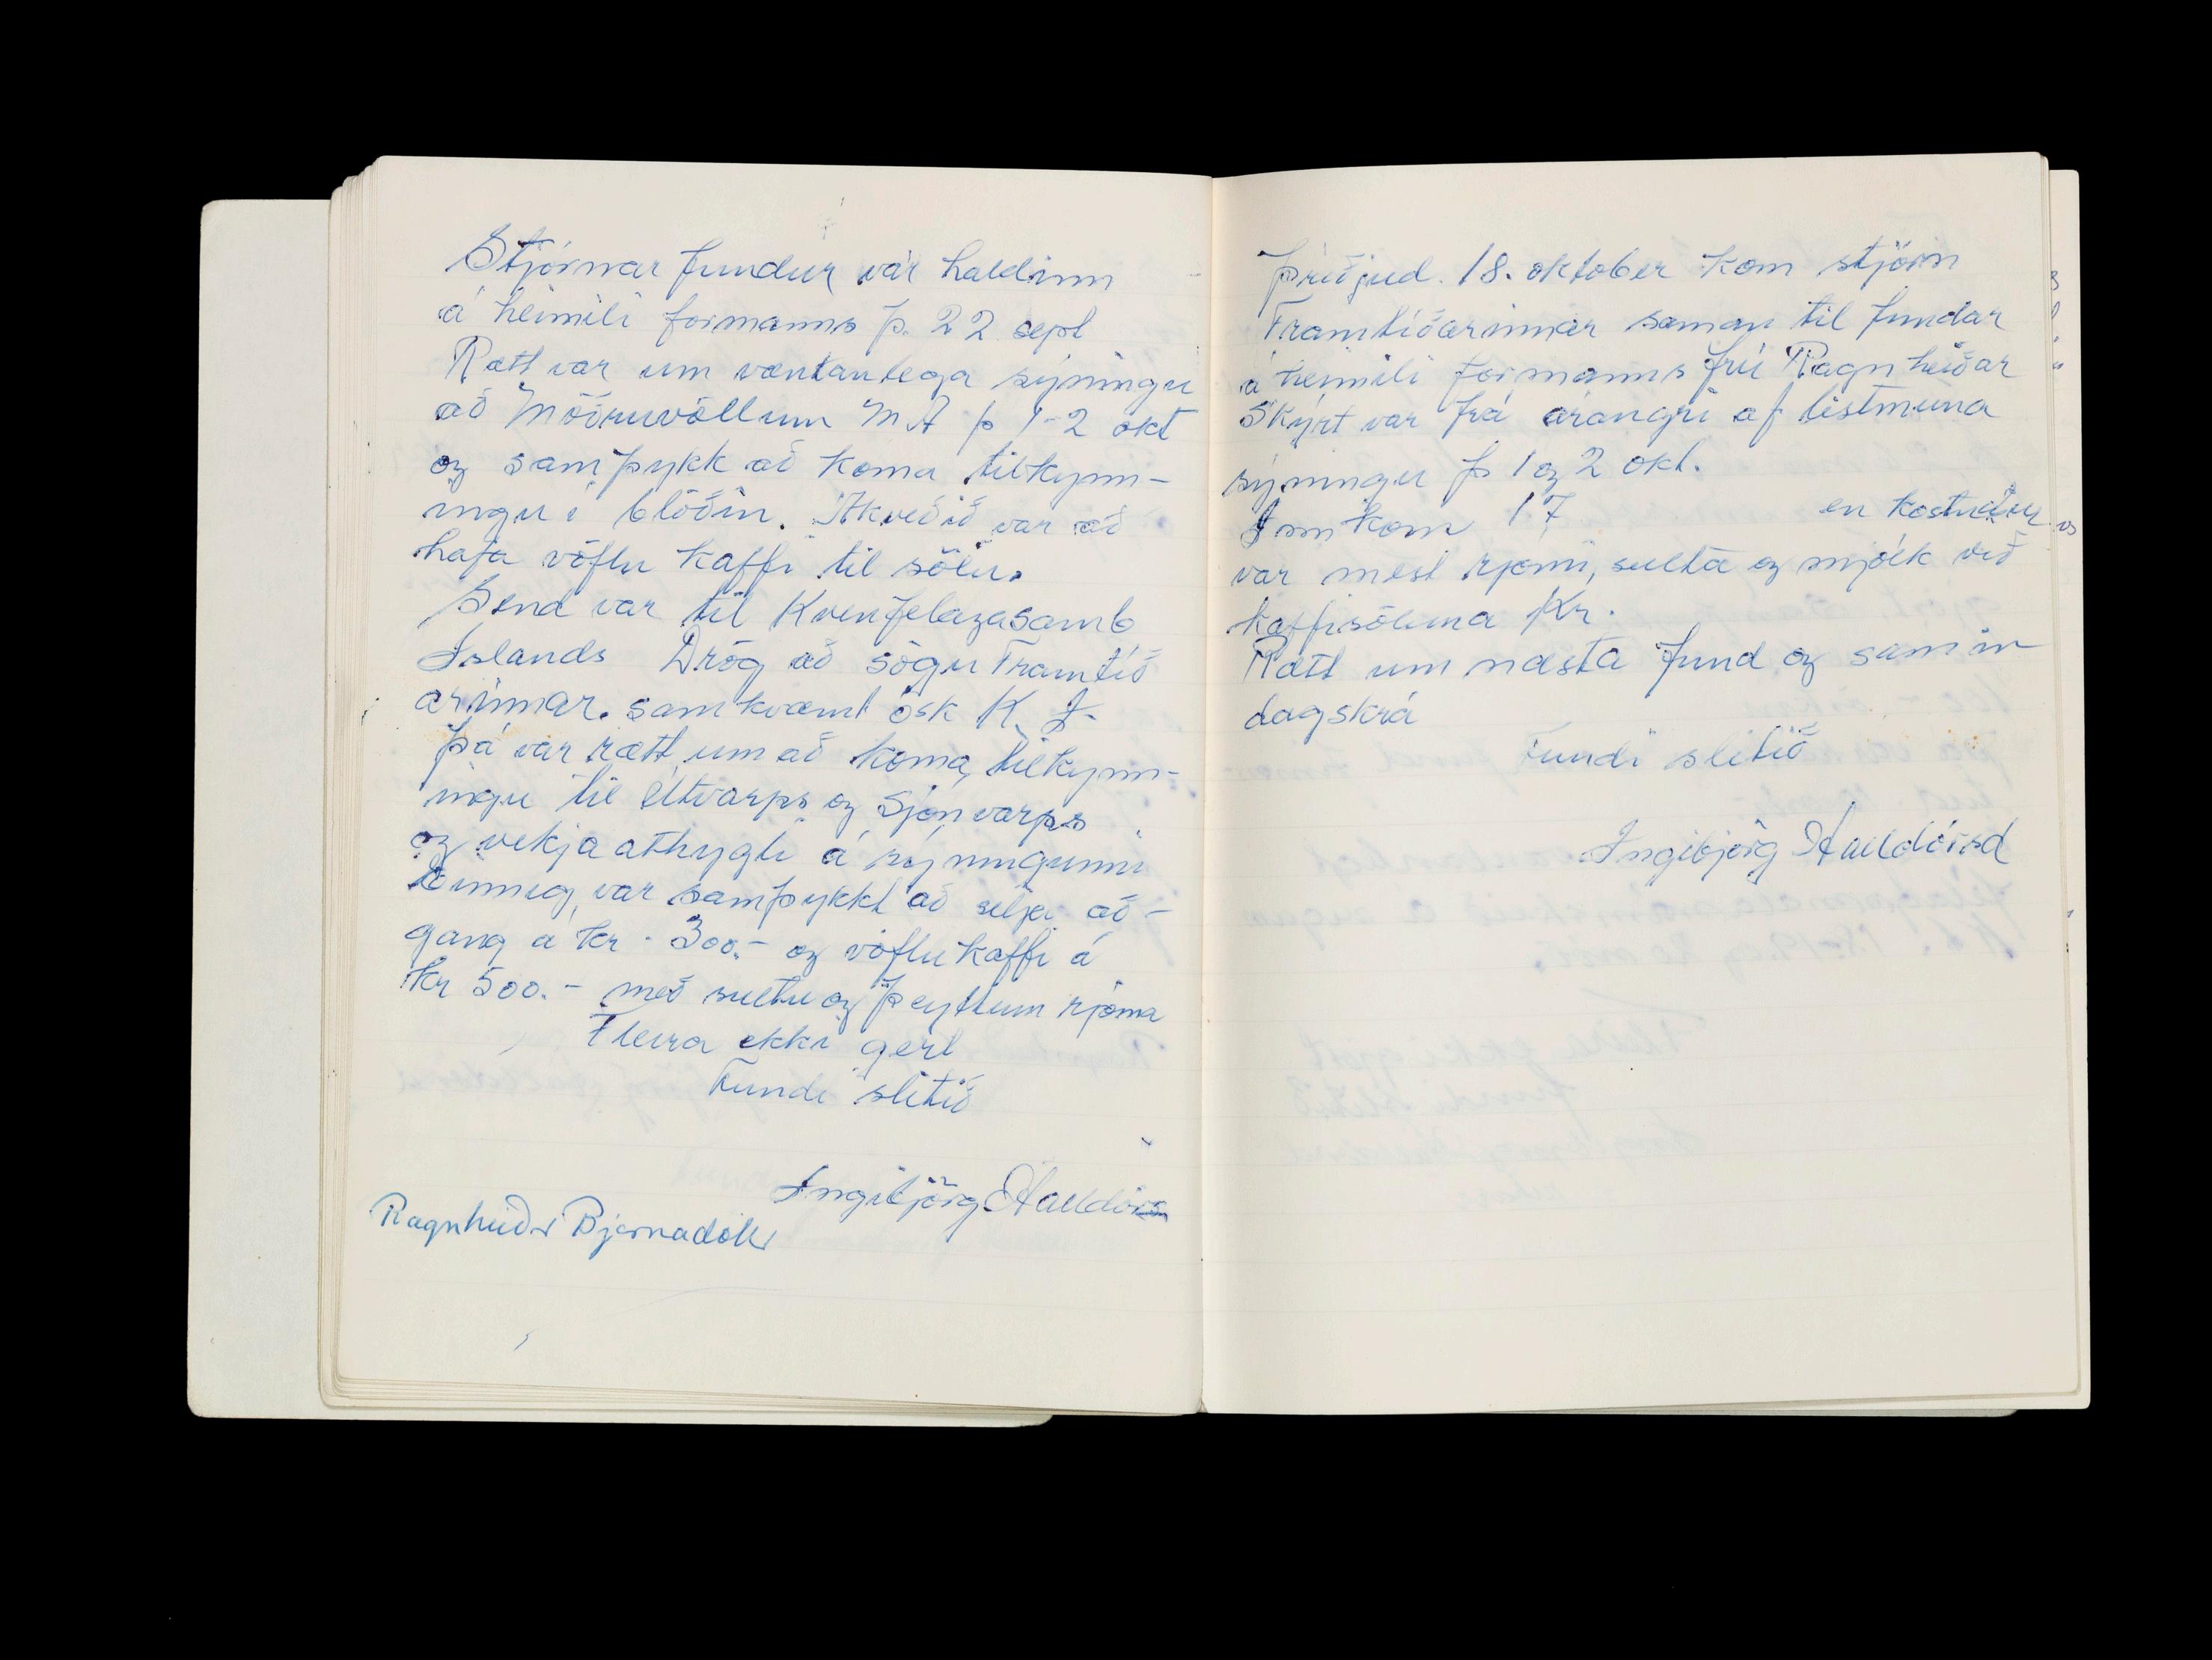 Stjórnar fundur var haldinn
á heimili formanns þ. 22 sept
Rætt var um væntanlega sýningu
að Möðruvöllum MA þ 1-2 okt
og samþykk að koma tilkynn-
ingu í blöðin. Ákveðið var að
hafa vöflu kaffi til sölu.
Send var til Kvenfelagasamb
Islands Drög að sögu Framtíð
arinnar. samkvæmt ósk K. I.
Þá var rætt um að koma tilkynn-
ingu til Utvarps og Sjónvarps
og vekja athygli á sýningunni
Einnig var samþykkt að selja að-
gang á kr. 300.- og vöflukaffi á
kr 500.- með sultu og þeyttum rjóma
Fleira ekki gert
Fundi slitið
Ingibjörg Halldórs
Ragnheiður Bjarnadóttir
Þriðjud. 18. oktober kom stjórn
Framtíðarinnar saman til fundar
á heimili formanns frú Ragnheiðar
Skýrt var frá árangri af listmuna
sýningu þ 1 og 2 okt.
Inn kom 17 en kostnaður
var mest rjómi, sulta og mjólk við
kaffisöluna Kr.
Rætt um næsta fund og samin
dagskrá
Fundi slitið
Ingibjörg Halldórsd